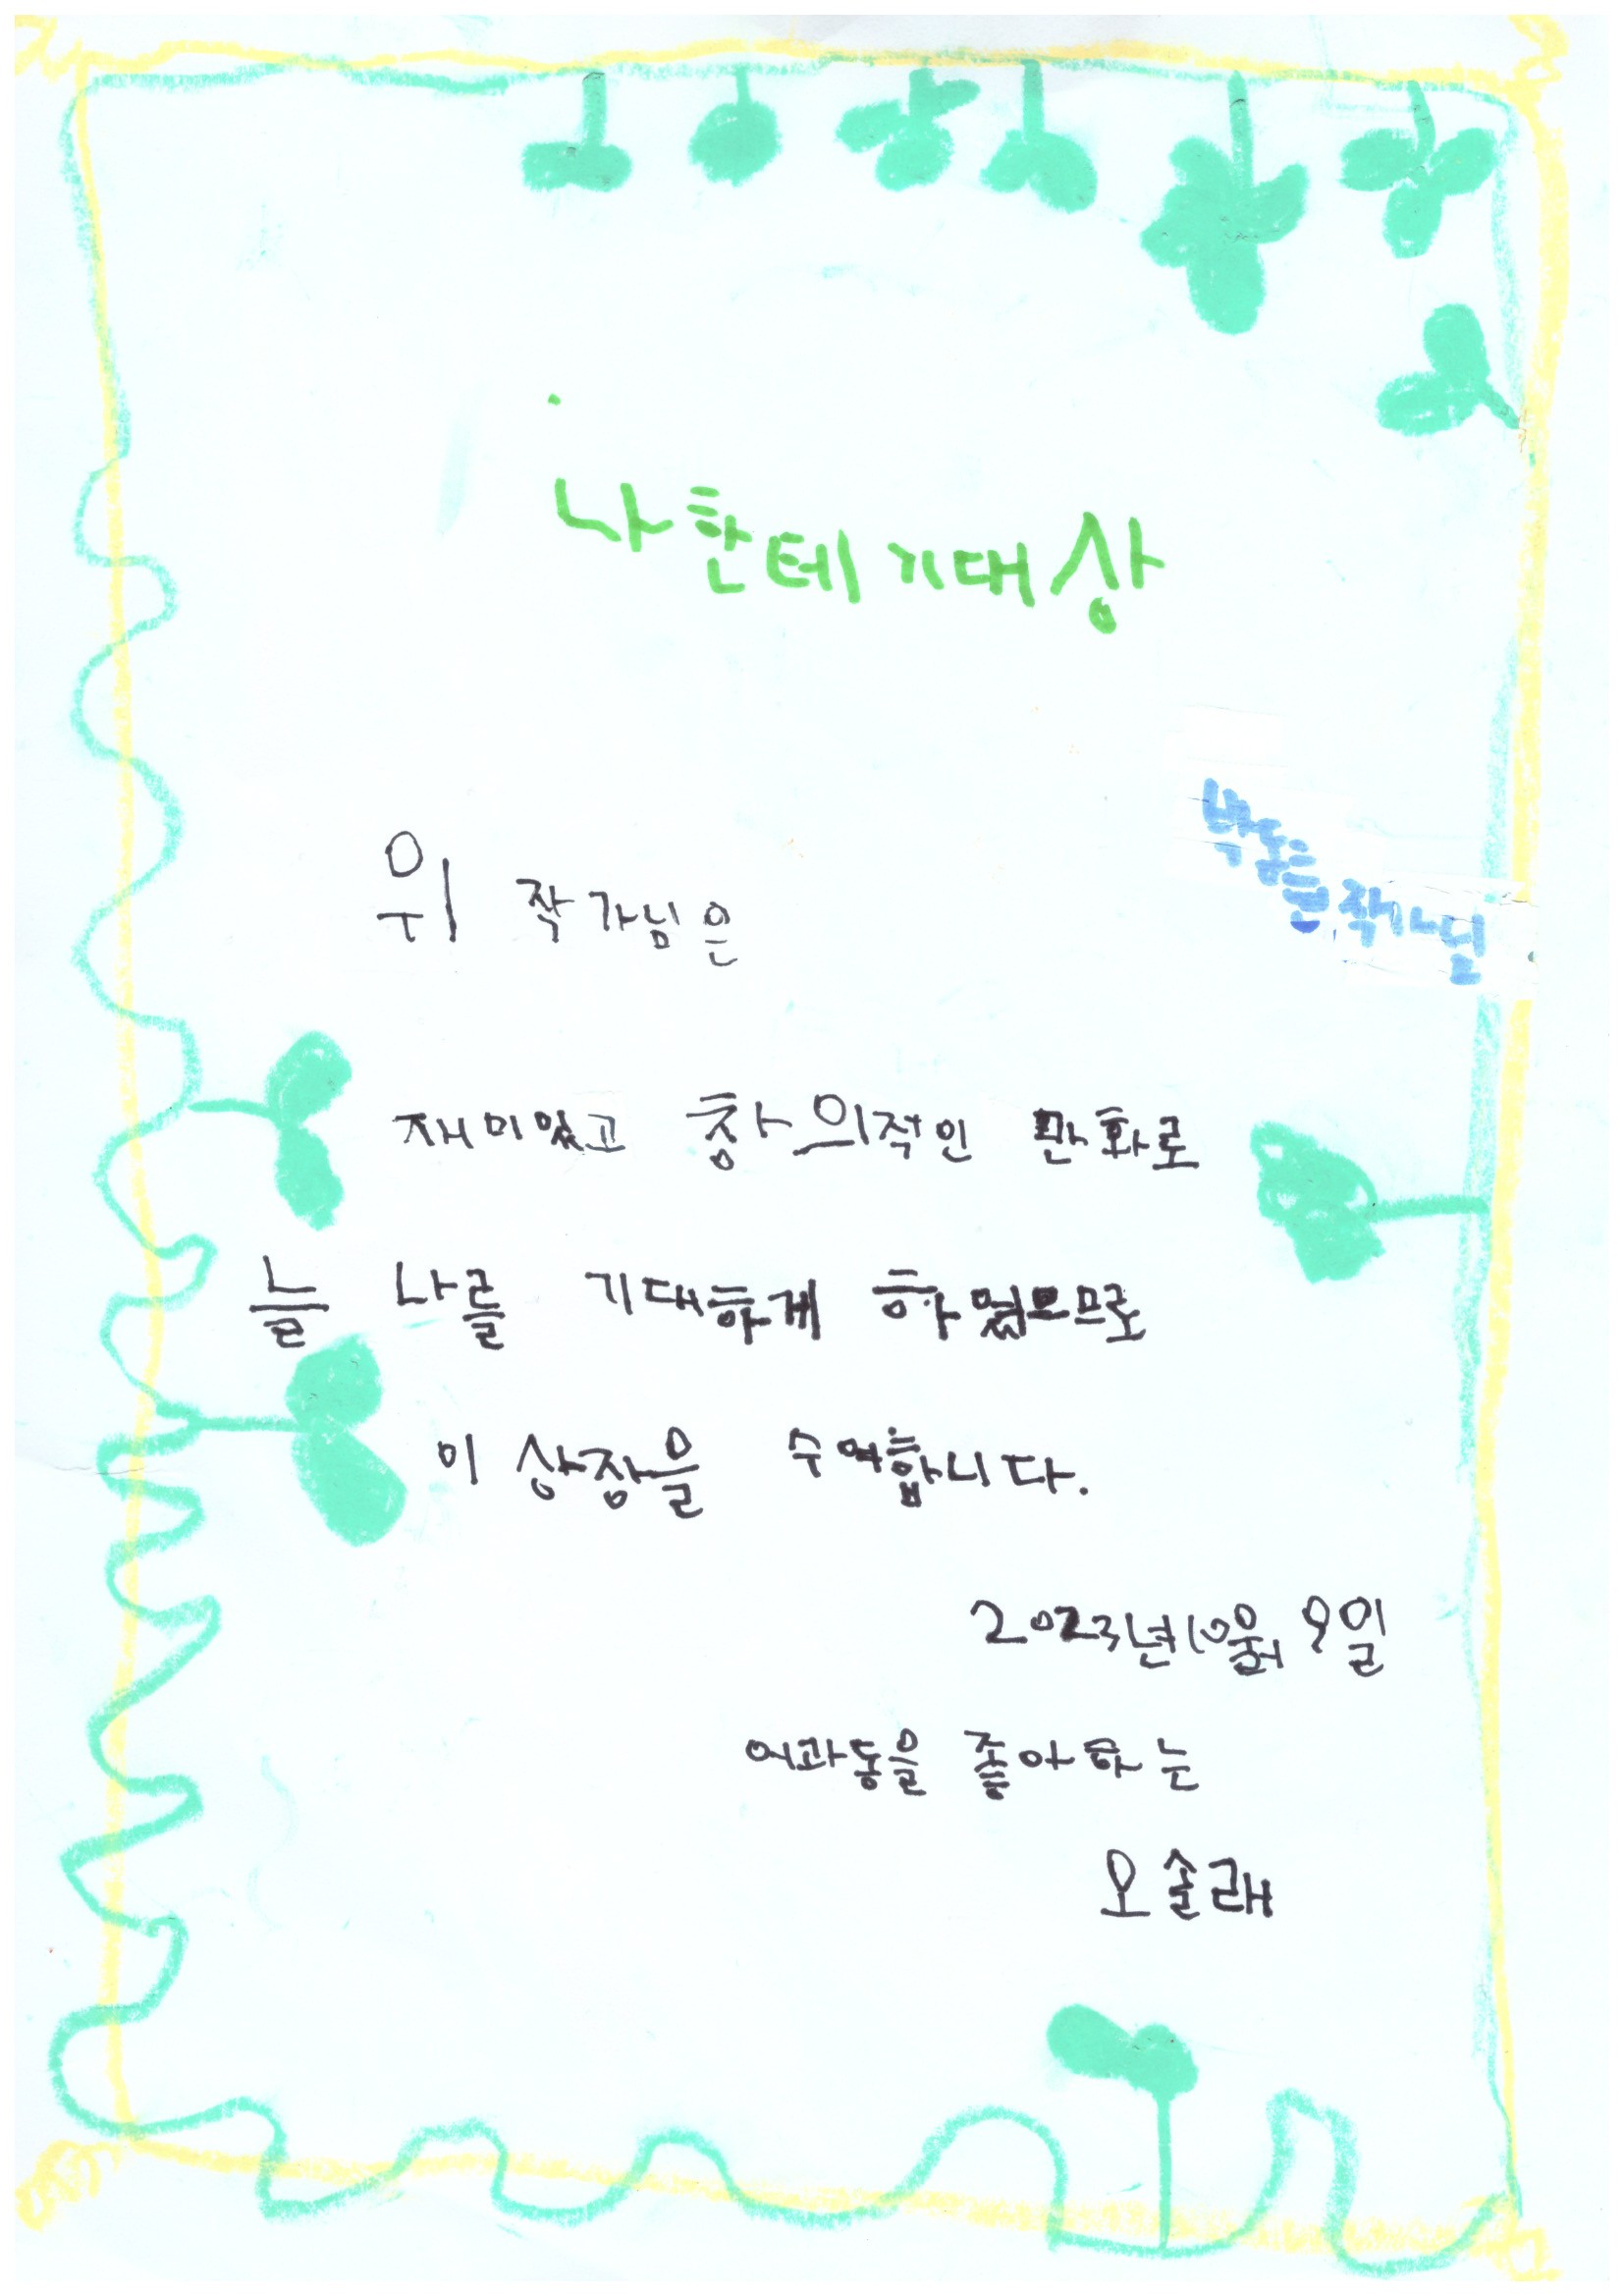 나한테 기대상
박동현 작가님
위 작가님은
재미있고 창의적인 만화로
늘 나를 기대하게 하였으므로
이 상장을 수여합니다.
2023년 10월 9일
어과동을 좋아하는
오솔래